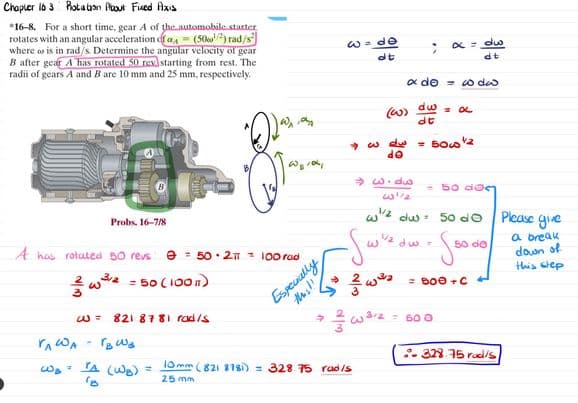 Chapter 16 3 Rotation About Fixed Axis
*16–8. For a short time, gear A of the automobile starter
rotates with an angular acceleration of α_A = (50ω^1/2) rad/s²,
where ω is in rad/s. Determine the angular velocity of gear
B after gear A has rotated 50 rev, starting from rest. The
radii of gears A and B are 10 mm and 25 mm, respectively.
A
B
Probs. 16–7/8
A
B
ω_A, α_A
r_A
ω_B, α_B
r_B
ω = dθ/dt ; α = dω/dt
α dθ = ω dω
(ω) dω/dt = α
→ ω dω/dθ = 50ω^1/2
⇒ ω·dω/ω^1/2 = 50 dθ
ω^1/2 dω = 50 dθ
∫ω^1/2 dω = ∫50 dθ
⇒ 2/3 ω^3/2 = 50θ + C
⇒ 2/3 ω^3/2 = 50θ
Please give
a break
down of
this step
Especially
this!!
A has rotated 50 revs θ = 50·2π = 100 rad
2/3 ω^3/2 = 50(100π)
ω = 821 8781 rad/s
r_A ω_A = r_B ω_B
ω_B = r_A/r_B (ω_B) = 10mm/25mm (821 8781) = 328.75 rad/s
∴ 328.75 rad/s